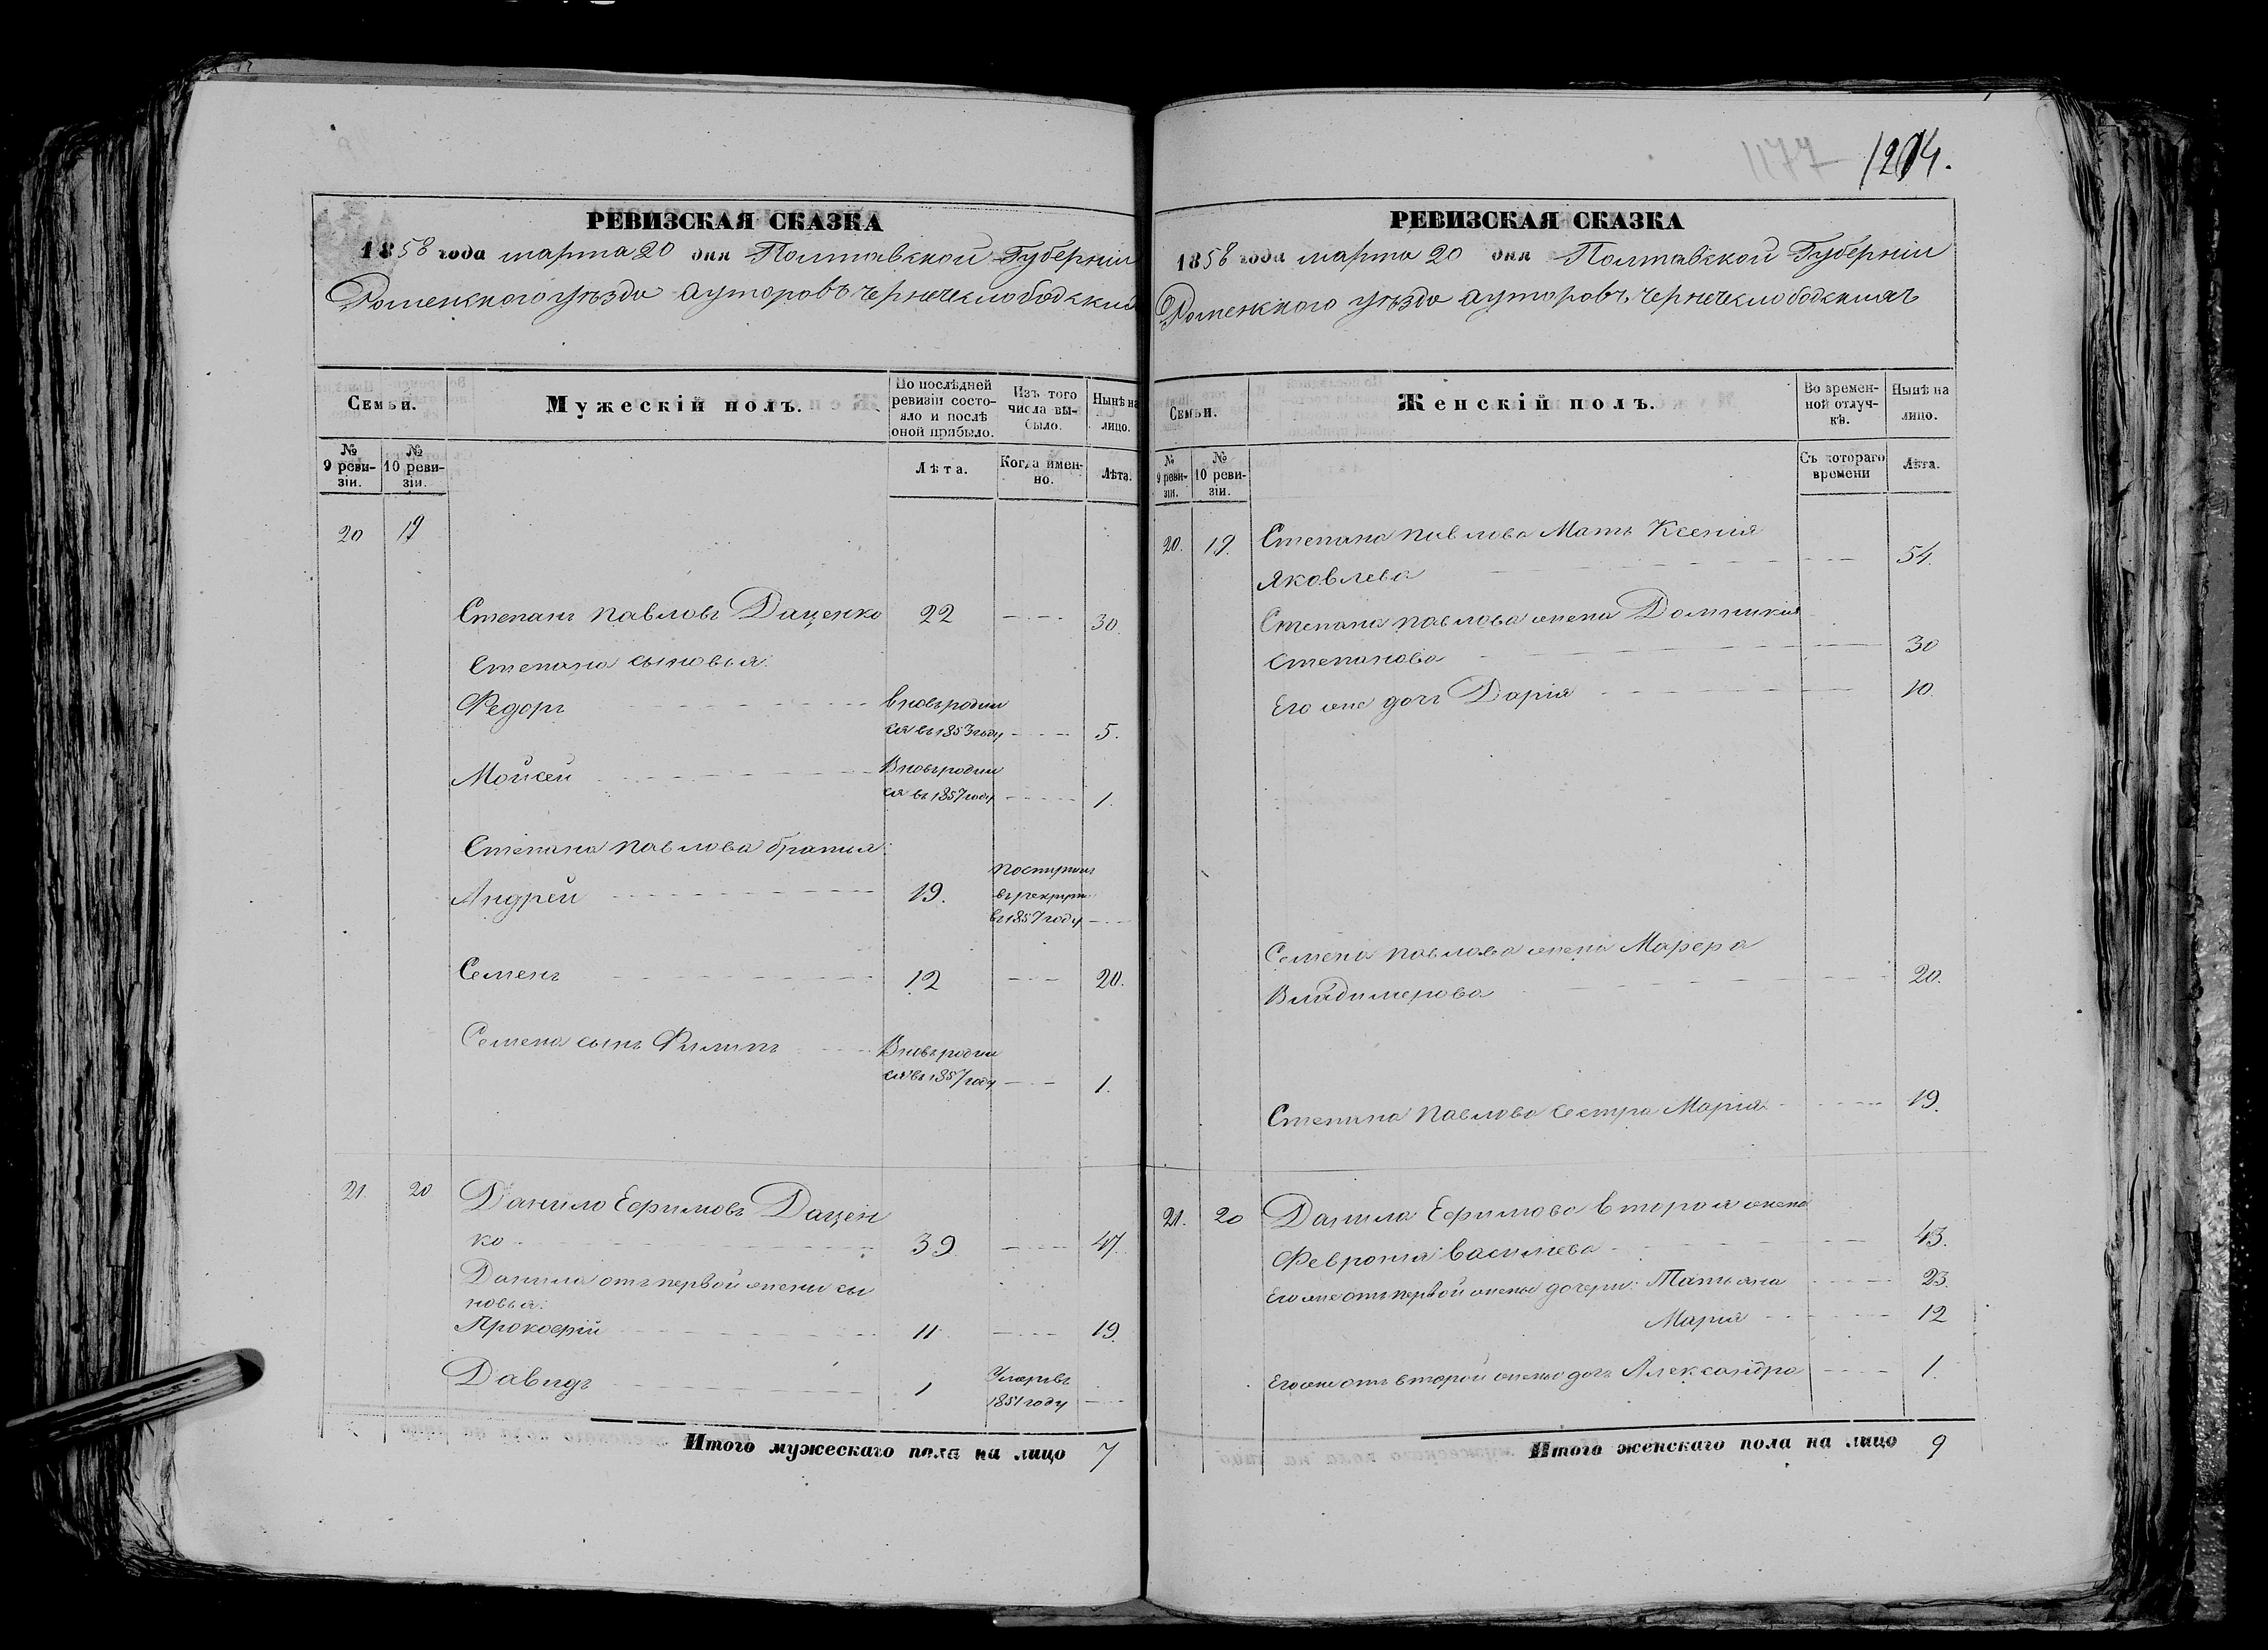 1177 1204.
РЕВИЗСКАЯ СКАЗКА
1858 года марта 20 дня Полтавской Губерніи
Роменскаго уѣзда хуторовъ Чернечеслободскихъ
Семьи.
Мужескій полъ.
По послѣдней ревизіи состояло и послѣ оной прибыло.
Изъ того числа выбыло.
Нынѣ на лицо.
№ 9 ревизіи.
№ 10 ревизіи.
Лѣта.
Когда именно.
Лѣта.
20 19
Степанъ Павловъ Даценко 22 30.
Степана сыновья:
Федоръ вновь родил
ся въ 1853 году 5.
Мойсей Вновь родил
ся въ 1857 году 1.
Степана Павлова братья:
Андрей 19. поступилъ
въ рекруты
въ 1857 году
Семенъ 12 20.
Семена сынъ Филипъ Вновь родил
ся въ 1857 году 1.
21. 20 Данило Ефимовъ Дацен
ко 39. 47.
Данила отъ первой жены сы
новья:
Прокофій 11 19.
Давидъ 1 Умеръ въ
1851 году
Итого мужескаго пола на лицо 7
РЕВИЗСКАЯ СКАЗКА
1858 года марта 20 дня Полтавской Губерніи
Роменскаго уѣзда хуторовъ Чернечеслободскихъ
Семьи.
Женскій полъ.
Во временной отлучкѣ.
Нынѣ на лицо.
№ 9 ревизіи.
№ 10 ревизіи.
Съ котораго времени
Лѣта.
20. 19. Степана Павлова Мать Ксенія
Яковлева 54.
Степана Павлова жена Домникія
Степанова 30
Его же дочь Дарія 10.
Семена Павлова жена Марфа
Владимерова 20.
Степана Павлова сестра Марія 19.
21. 20 Данила Ефимова вторая жена
Февронія Василіева 43.
Его же отъ первой жены дочери: Татьяна 23
Марія 12
Его же отъ второй жены дочь Александра 1.
Итого женскаго пола на лицо 9